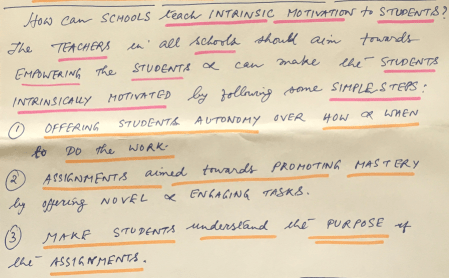 How can SCHOOLS teach INTRINSIC MOTIVATION to STUDENTS?
The TEACHERS in all schools should aim towards
EMPOWERING the STUDENTS & can make the STUDENTS
INTRINSICALLY MOTIVATED by following some SIMPLE STEPS:
① OFFERING STUDENTS AUTONOMY OVER HOW & WHEN
to DO the WORK.
② ASSIGNMENTS aimed towards PROMOTING MASTERY
by offering NOVEL & ENGAGING TASKS.
③ MAKE STUDENTS understand the PURPOSE of
the ASSIGNMENTS.